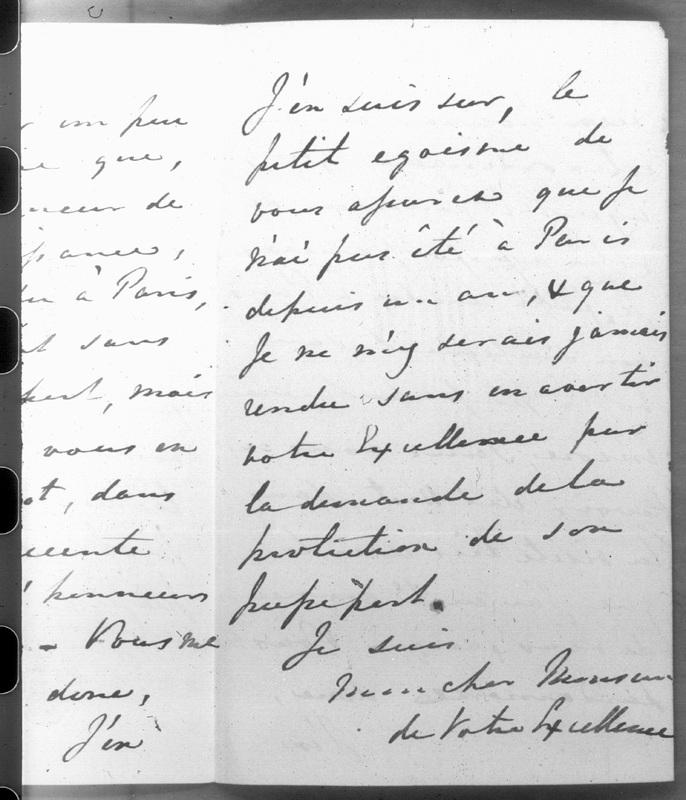 un peu
que,
neur de
à Paris,
sans
mais
vous en
dans
honneurs
Vous me
donc,
J'en
J'en suis sur, le
petit egoisme de
vous assurer que Je
n'ai pas êté à Paris
depuis un an, & que
Je ne m'y serais jamais
rendu sans en avertir
votre Excellence par
la demande de la
protection de son
passeport.
Je suis
mon cher Monsieur
de Votre Excellence